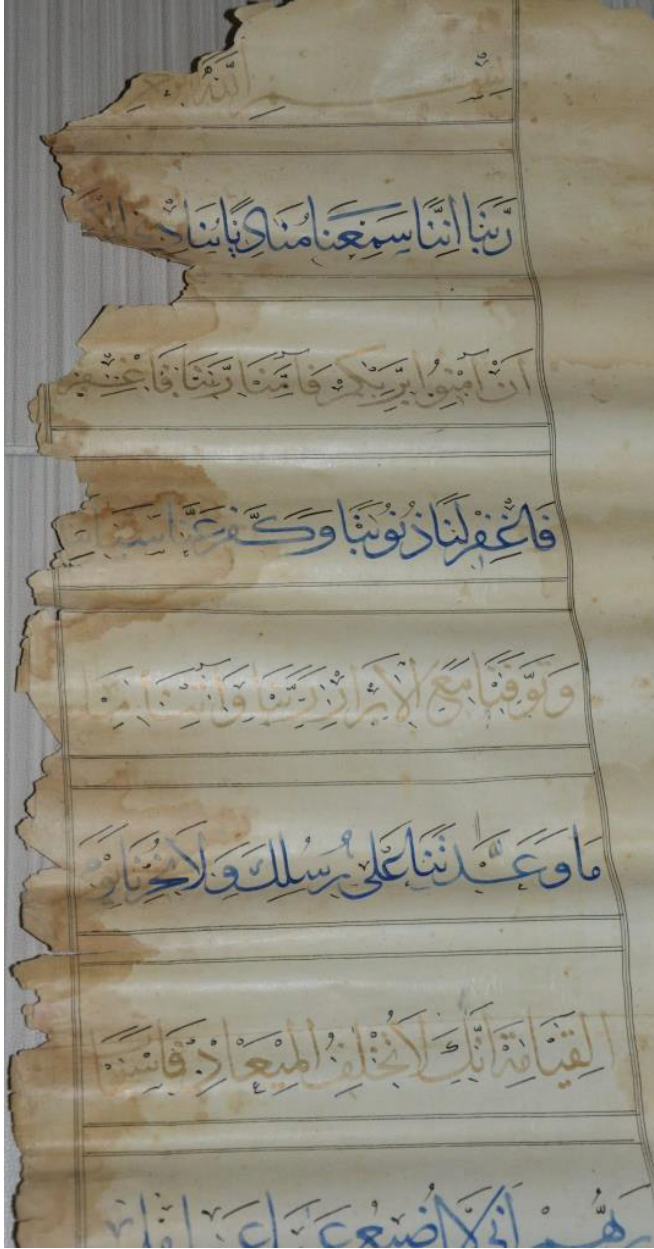 بِسْمِ اللَّهِ
رَبَّنَا اِنَّنَا سَمِعْنَا مُنَادِيًا يُنَادِي
اَنْ آمِنُوا بِرَبِّكُمْ فَآمَنَّا رَبَّنَا فَاغْفِر
فَاغْفِرْ لَنَا ذُنُوبَنَا وَكَفِّرْ عَنَّا
وَتَوَفَّنَا مَعَ الْاَبْرَارِ رَبَّنَا وَآتِنَا
مَا وَعَدْتَنَا عَلَى رُسُلِكَ وَلَا تُخْزِنَا يَوْمَ
الْقِيَامَةِ اِنَّكَ لَا تُخْلِفُ الْمِيعَادَ
رَبُّهُمْ اَنِّي لَا اُضِيعُ عَمَلَ عَامِلٍ